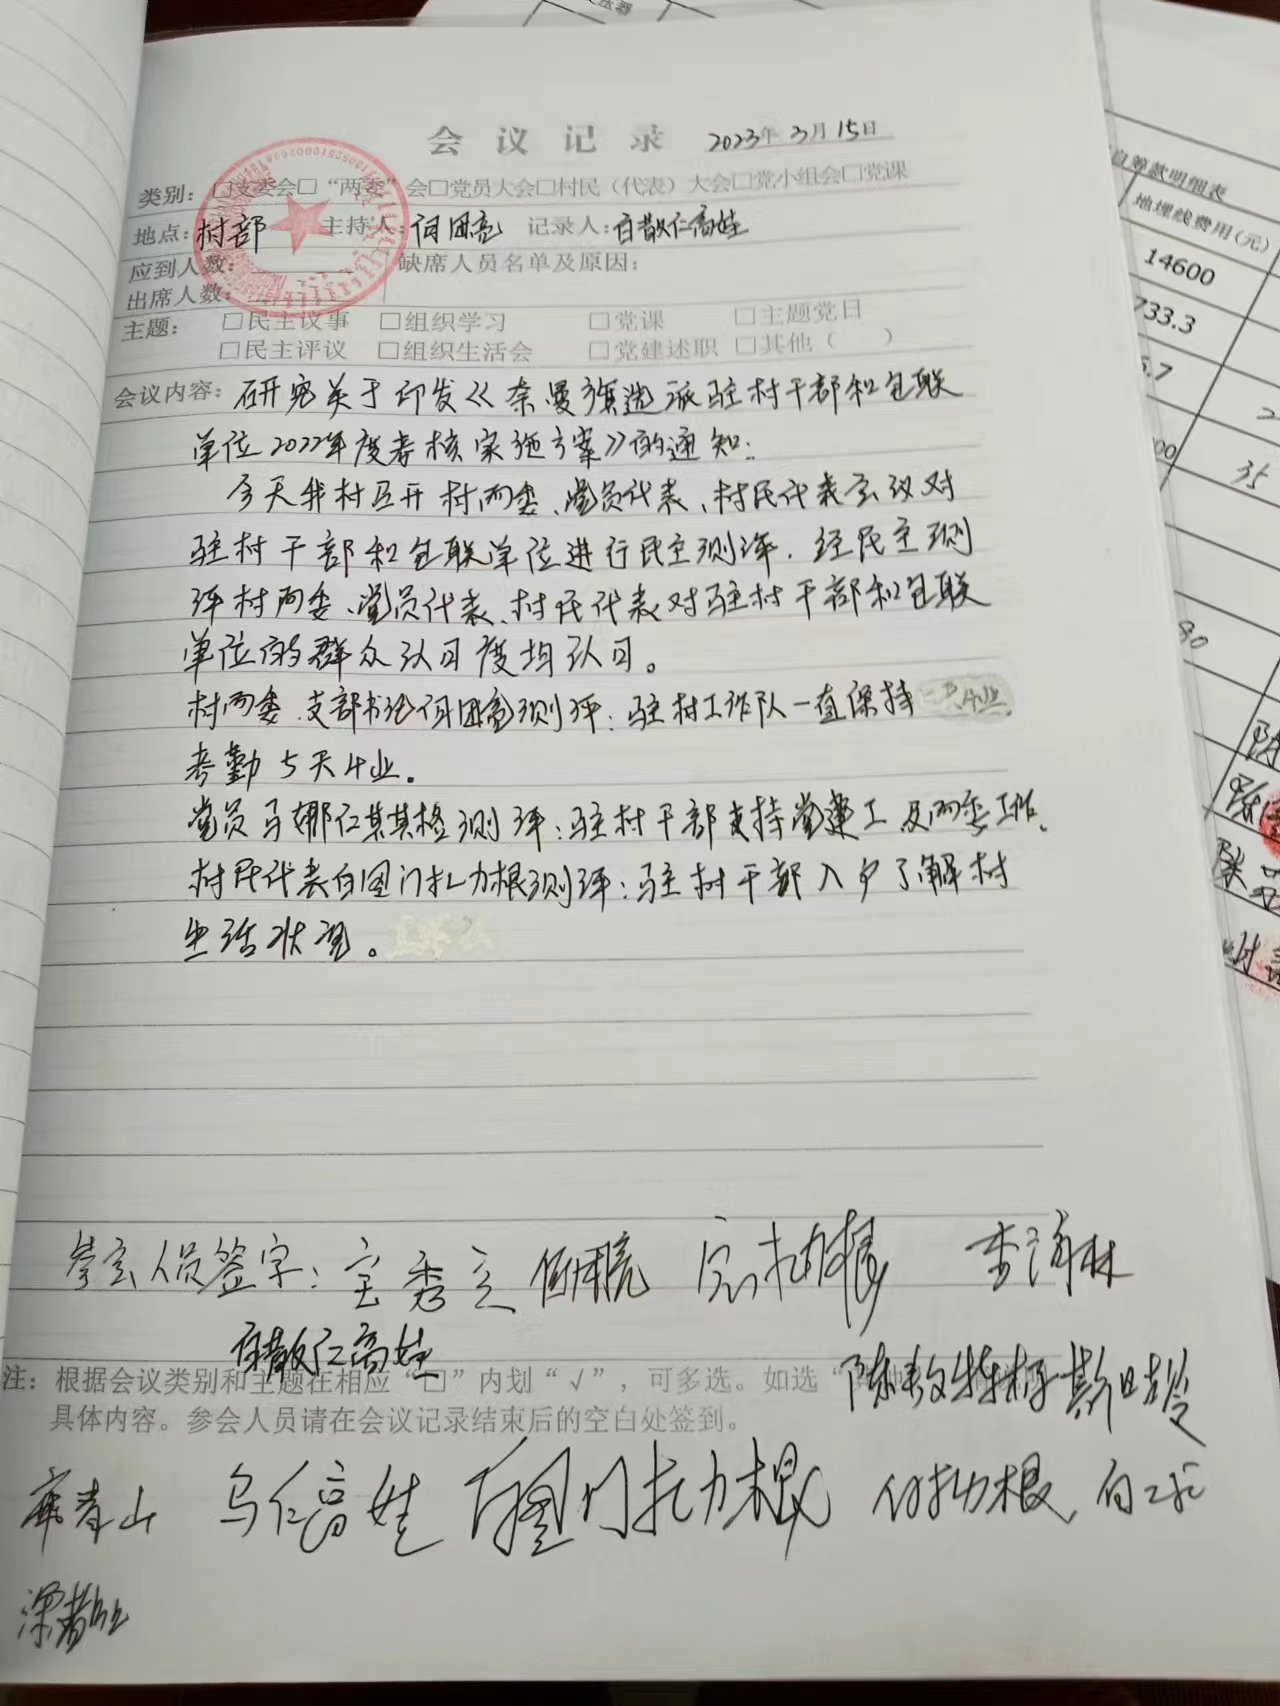 压器
会议记录 2023年3月15日
类别：□支委会□“两委”会□党员大会□村民（代表）大会□党小组会□党课
地点：村部 主持人：何团亮 记录人：白散仁高娃
应到人数： 缺席人员名单及原因：
出席人数：
主题： □民主议事 □组织学习 □党课 □主题党日
□民主评议 □组织生活会 □党建述职 □其他（ ）
会议内容：研究关于印发《奈曼旗选派驻村干部和包联
单位2022年度考核实施方案》的通知：
今天我村召开村两委、党员代表、村民代表会议对
驻村干部和包联单位进行民主测评，经民主测
评村两委、党员代表、村民代表对驻村干部和包联
单位的群众认可度均认可。
村两委、支部书记何团亮测评：驻村工作队一直保持
考勤5天4业。
党员马娜仁其其格测评：驻村干部支持党建工及两委工作。
村民代表白图门扎力根测评：驻村干部入户了解村
生活状况。
参会人员签字：宝秀兰 何团亮
白散仁高娃
注：根据会议类别和主题在相应“□”内划“√”，可多选。如选“
具体内容。参会人员请在会议记录结束后的空白处签到。
乌仁高娃 白图门扎力根
自筹款明细表
地埋线费用(元)
14600
733.3
35